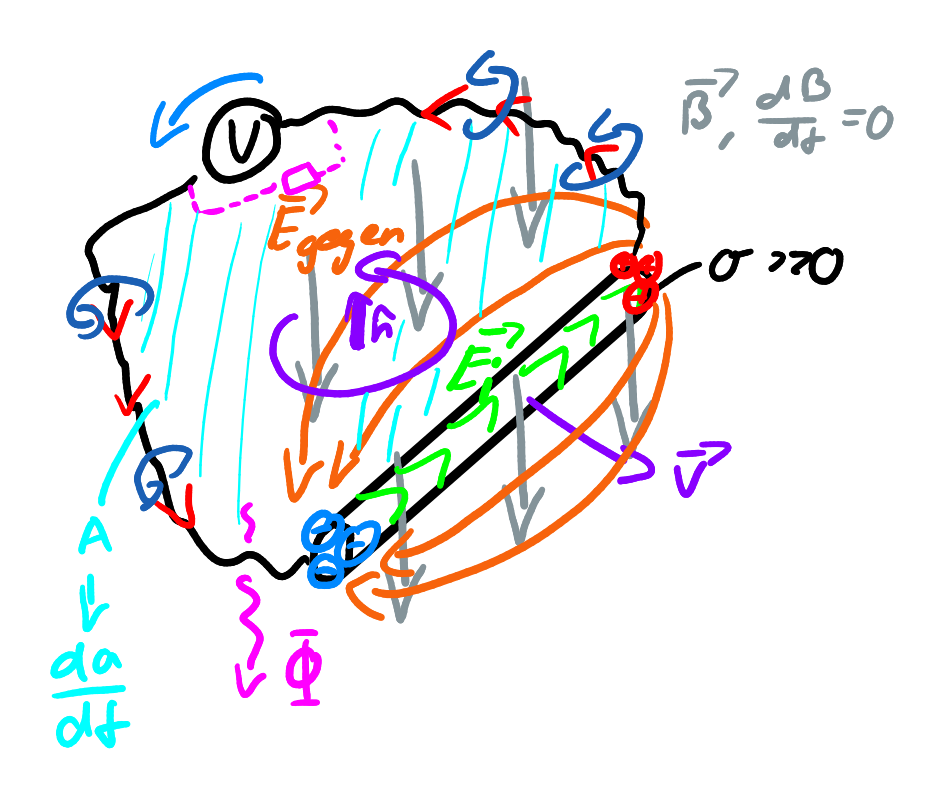 V
B⃗, dB/dt = 0
E⃗gegen
n̂
σ >> 0
E⃗i
v⃗
A
Φ
da/dt